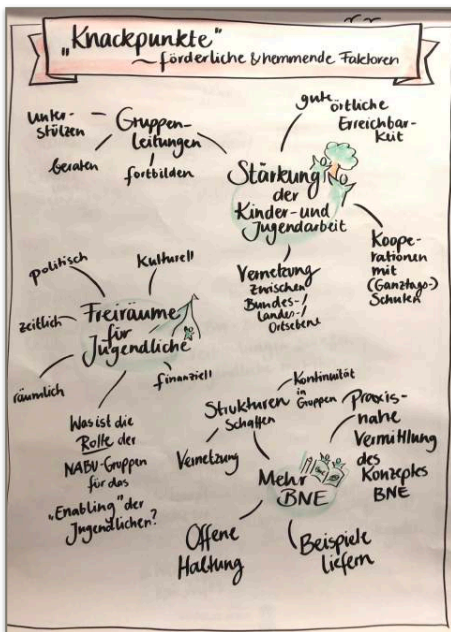 „Knackpunkte“
~ förderliche & hemmende Faktoren
Unter-
stützen
Gruppen-
leitungen
beraten
fortbilden
gute örtliche
Erreichbar-
keit
Stärkung
der
Kinder- und
Jugendarbeit
Koope-
rationen
mit
(Ganztags-)
Schulen
Vernetzung
zwischen
Bundes-/
Landes-/
Ortsebene
politisch
Kulturell
zeitlich
Freiräume
für
Jugendliche
räumlich
finanziell
Was ist die
Rolle der
NABU-Gruppen
für das
„Enabling“ der
Jugendlichen?
Kontinuität
in
Gruppen
Strukturen
Schaffen
Vernetzung
Praxis-
nahe
Vermittlung
des
Konzeptes
BNE
Mehr
BNE
Offene
Haltung
Beispiele
liefern